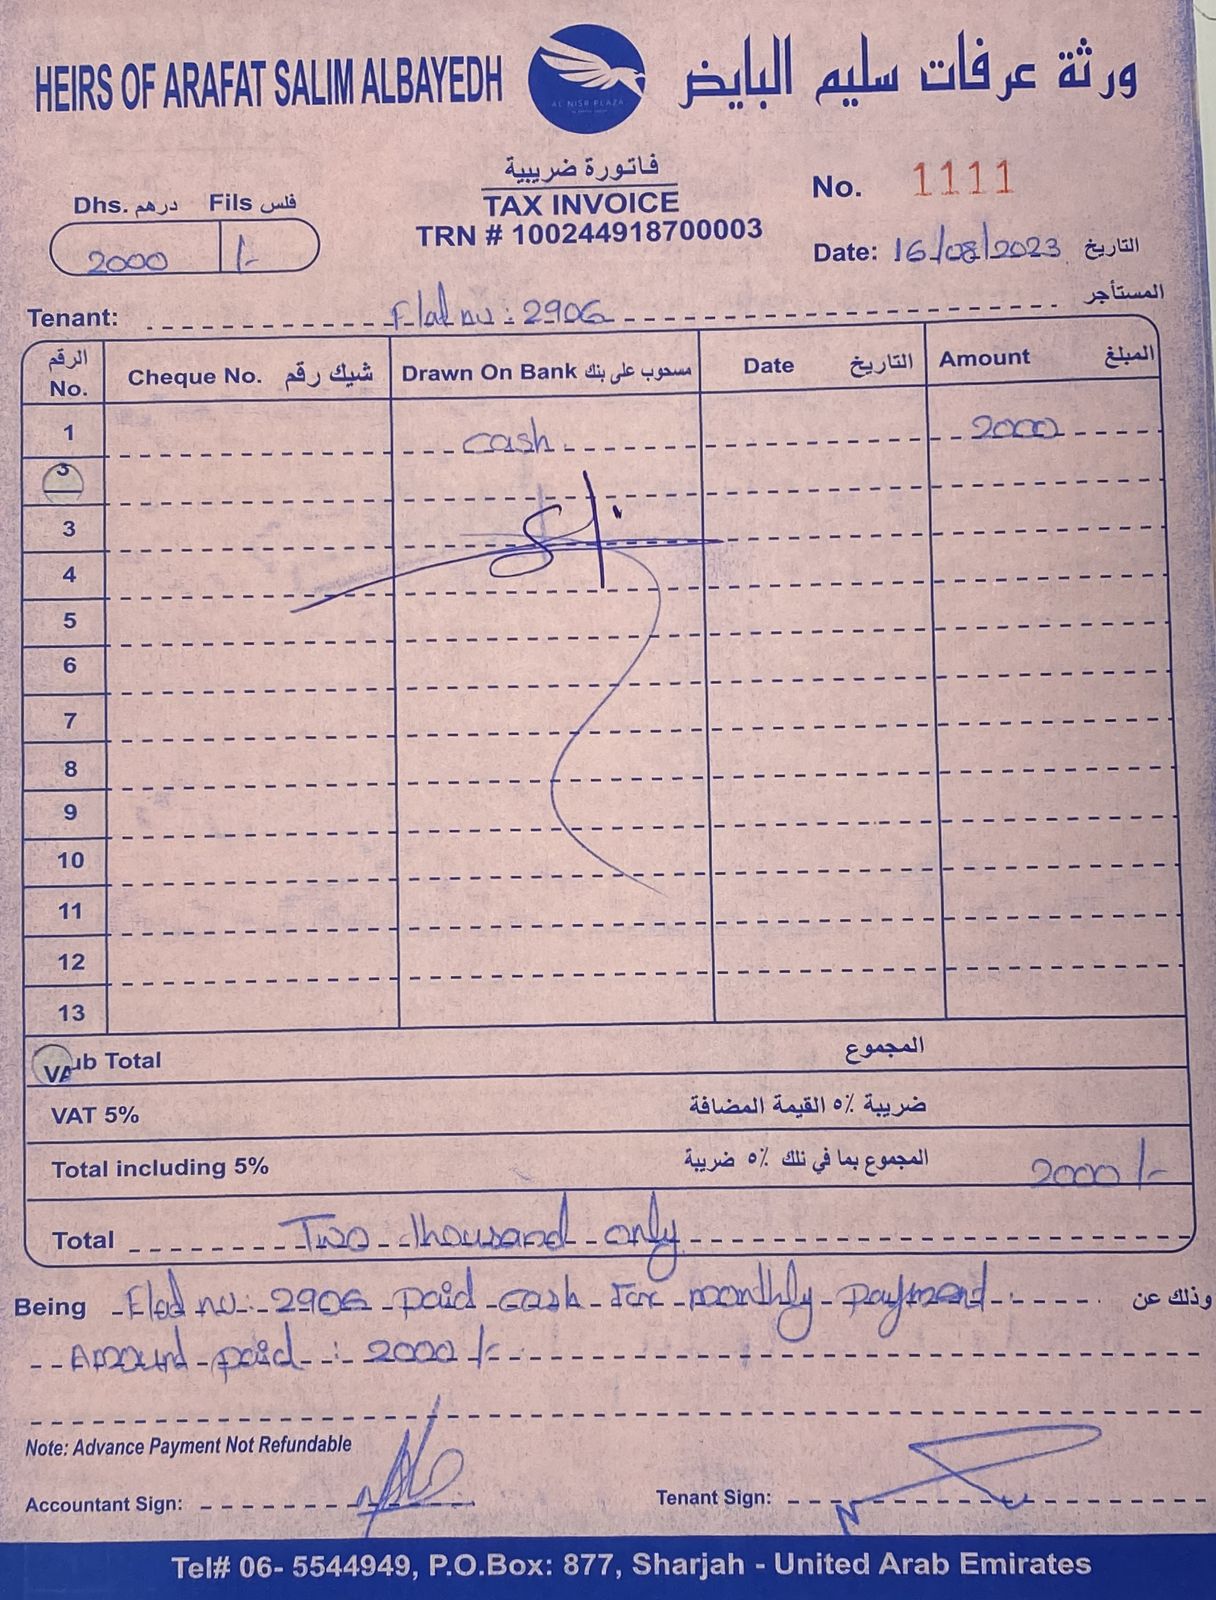 HEIRS OF ARAFAT SALIM ALBAYEDH
ورثة عرفات سليم البايض
AL NISR PLAZA
فاتورة ضريبية
TAX INVOICE
TRN # 100244918700003
No. 1111
Dhs. درهم Fils فلس
2000 /-
Date: 16/08/2023 التاريخ
Tenant: Flat no: 2906 المستأجر
الرقم No. Cheque No. شيك رقم Drawn On Bank مسحوب على بنك Date التاريخ Amount المبلغ
1 cash 2000
3
4
5
6
7
8
9
10
11
12
13
ub Total المجموع
VA
VAT 5% ضريبة ٥٪ القيمة المضافة
Total including 5% المجموع بما في نلك ٥٪ ضريبة 2000 /-
Total Two thousand only
Being Flat no: 2906 paid cash for monthly payment وذلك عن
Amount paid : 2000 /-
Note: Advance Payment Not Refundable
Accountant Sign: Tenant Sign:
Tel# 06- 5544949, P.O.Box: 877, Sharjah - United Arab Emirates